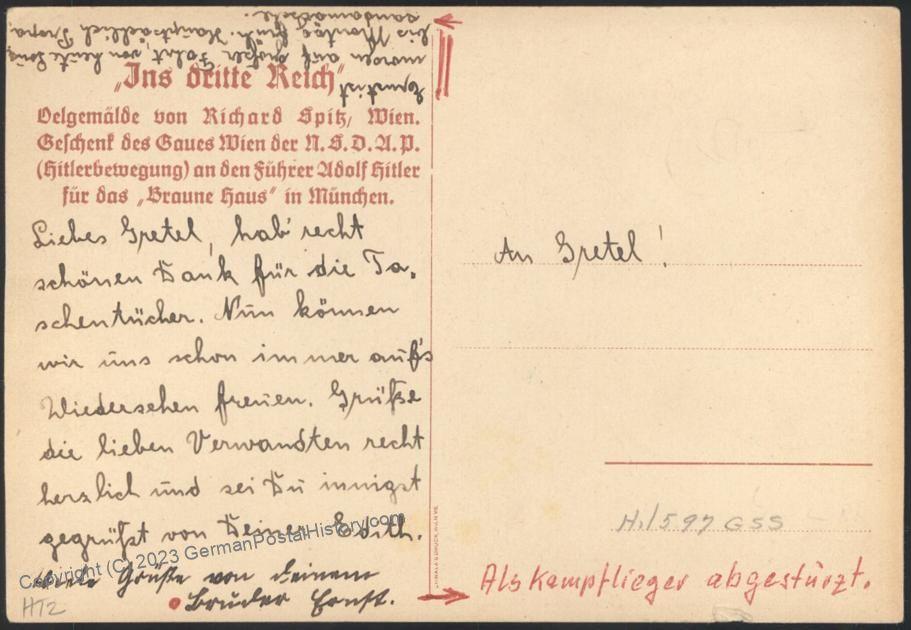 „Ins dritte Reich"
Oelgemälde von Richard Spitz, Wien.
Geschenk des Gaues Wien der N.S.D.A.P.
(Hitlerbewegung) an den Führer Adolf Hitler
für das „Braune Haus" in München.
Liebes Gretel, hab' recht
schönen Dank für die Ta-
schentücher. Nun können
wir uns schon immer auf's
Wiedersehen freuen. Grüße
die lieben Verwandten recht
herzlich und sei Du innigst
gegrüßt von Deiner Edith.
Viele Grüße von Deinem
Bruder Ernst.
Ernst ist
morgen auf großer Fahrt, von heute
bis Montag früh. Hauptsächlich
An Gretel!
H.1597 GSS
Als Kampflieger abgestürzt.
HT2
Copyright (C) 2023 GermanPostalHistory.com